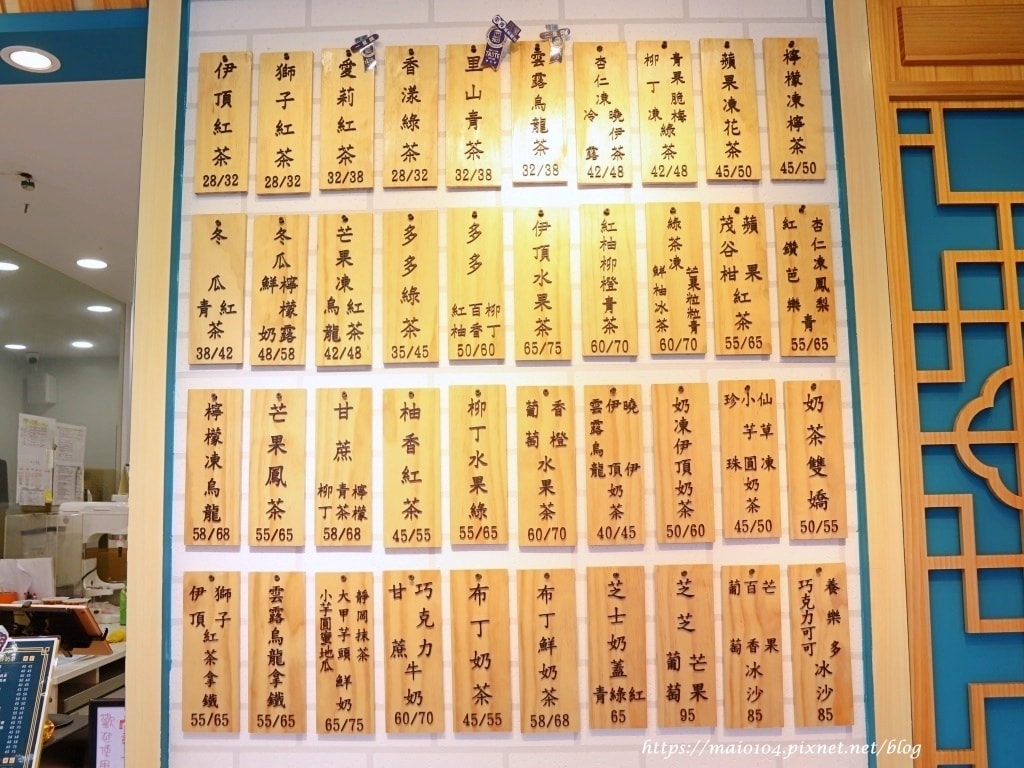 伊頂紅茶
28/32
獅子紅茶
28/32
愛莉紅茶
32/38
香漾綠茶
28/32
里山青茶
32/38
雲露烏龍茶
32/38
杏仁凍
曉伊茶
冷露
42/48
青果脆梅
柳丁凍
綠茶
42/48
蘋果凍花茶
45/50
檸檬凍檸茶
45/50
冬瓜
紅青
茶
38/42
冬瓜
檸檬露
鮮奶
48/58
芒果凍
紅茶
烏龍
42/48
多多綠茶
35/45
多多
柳丁
百香
紅柚
50/60
伊頂水果茶
65/75
紅柚柳橙青茶
60/70
綠茶凍
芒果粒粒青
鮮柚冰茶
60/70
蘋果紅茶
茂谷柑
55/65
杏仁凍鳳梨
紅鑽芭樂
青
55/65
檸檬凍烏龍
58/68
芒果鳳茶
55/65
甘蔗
檸檬
青茶
柳丁
58/68
柚香紅茶
45/55
柳丁水果綠
55/65
香橙
葡萄
水果茶
60/70
曉伊
伊頂奶茶
雲露烏龍
40/45
奶凍伊頂奶茶
50/60
仙草凍
小芋圓奶茶
珍珠
45/50
奶茶雙嬌
50/55
獅子
伊頂
紅茶拿鐵
55/65
雲露烏龍拿鐵
55/65
靜岡抹茶
大甲芋頭
小芋圓蜜地瓜
鮮奶
65/75
巧克力
甘蔗
牛奶
60/70
布丁奶茶
45/55
布丁鮮奶茶
58/68
芝士奶蓋
青綠紅
65
芝芝
芒果
葡萄
95
芒果
百香
葡萄
冰沙
85
養樂多
巧克力可可
冰沙
85
https://maio104.pixnet.net/blog